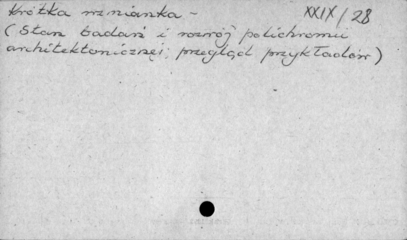 Krótka wzmianka -
XXIX/28
(Stan badań i rozwój polichromii
architektonicznej; przegląd przykładów)